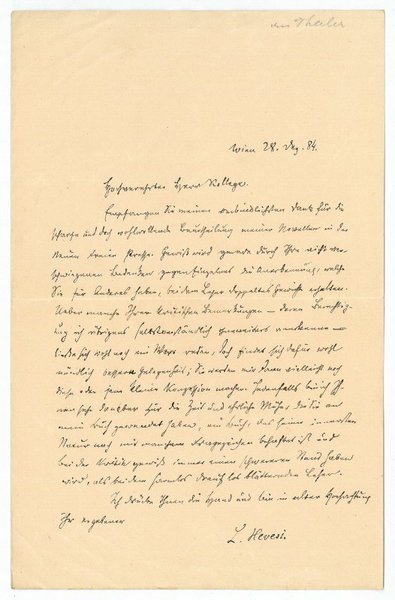 an Thaler
Wien 28. Dez. 84.
Hochverehrter Herr Kollege.
Empfangen Sie meinen verbindlichsten Dank für die
scharfe und doch wohlwollende Beurtheilung meiner Novellen in der
Neuen freien Presse. Gewiss wird gerade durch Ihre nicht ver-
schwiegenen Bedenken gegen Einzelnes die Anerkennung, welche
Sie für Anderes haben, bei dem Leser doppeltes Gewicht erhalten.
Ueber manche Ihrer kritischen Bemerkungen – deren Berechtig-
ung ich übrigens selbstverständlich anerkenne –
ließe sich wohl noch ein Wort reden, doch findet sich dafür wohl
mündlich bessere Gelegenheit; Sie werden mir dann vielleicht noch
diese oder jene kleine Konzession machen. Jedenfalls bin ich Ih-
nen sehr dankbar für die Zeit und ehrliche Mühe, die Sie an
mein Buch gewendet haben, ein Buch, das seiner innersten
Natur nach mit manchem Fragezeichen behaftet ist und
bei der Kritik gewiss immer einen schwereren Stand haben
wird, als bei dem harmlos blätternden Leser.
Ich drücke Ihnen die Hand und bin in alter Hochachtung
Ihr ergebener
L. Hevesi.